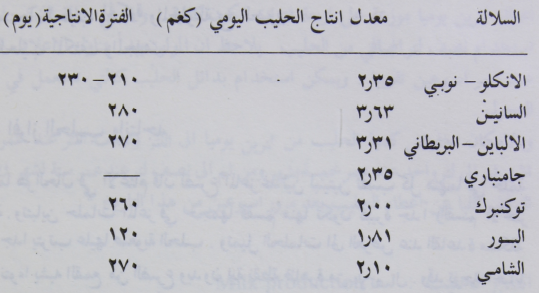 السلالة معدل انتاج الحليب اليومي (كغم) الفترة الانتاجية (يوم)
الانكلو - نوبي ٢٫٣٥ ٢١٠ - ٢٣٠
السانين ٣٫٦٣ ٢٨٠
الالباين - البريطاني ٣٫٣١ ٢٧٠
جامنباري ٢٫٣٥ —
توكنبرك ٢٫٠٠ ٢٦٠
البور ١٫٨١ ١٢٠
الشامي ٢٫١٠ ٢٧٠